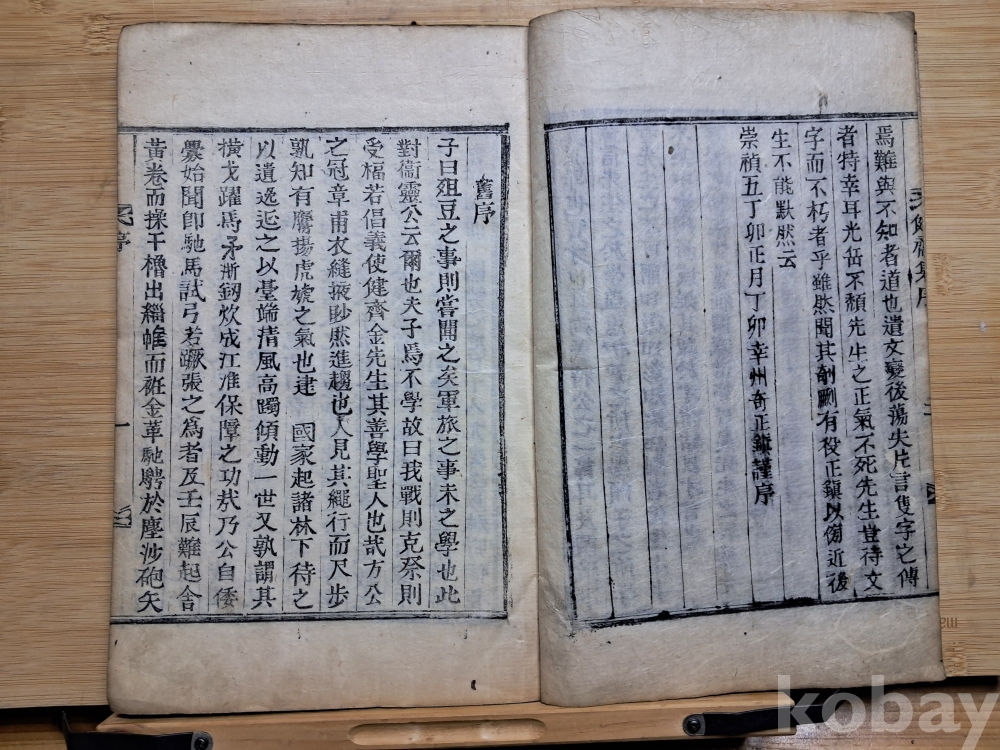 焉難與不知者道也遺文變後蕩失片言隻字之傳
者特幸耳光佔不頹先生之正氣不死先生豈待文
字而不朽者乎雖然聞其剞劂有役正鎭以傍近後
生不能默然云
崇禎五丁卯正月丁卯幸州奇正鎭謹序
健齋集序
二
舊序
子曰俎豆之事則嘗聞之矣軍旅之事未之學也此
對衞靈公云爾也夫子焉不學故曰我戰則克祭則
受福若倡義使健齋金先生其善學聖人也哉方公
之冠章甫衣縫掖眇然進趨也人見其繩行而尺步
孰知有鷹揚虎㙈之氣也逮 國家起諸林下待之
以遺逸迯之以臺端淸風高躅傾動一世又孰謂其
橫戈躍馬矛淅釰炊成江淮保障之功㢤乃公自倭
釁始聞卽馳馬試弓若蹶張之爲者及壬辰難起舍
黃卷而操干櫓出緇帷而袵金革馳騁於塵沙砲矢
序
一
kobay